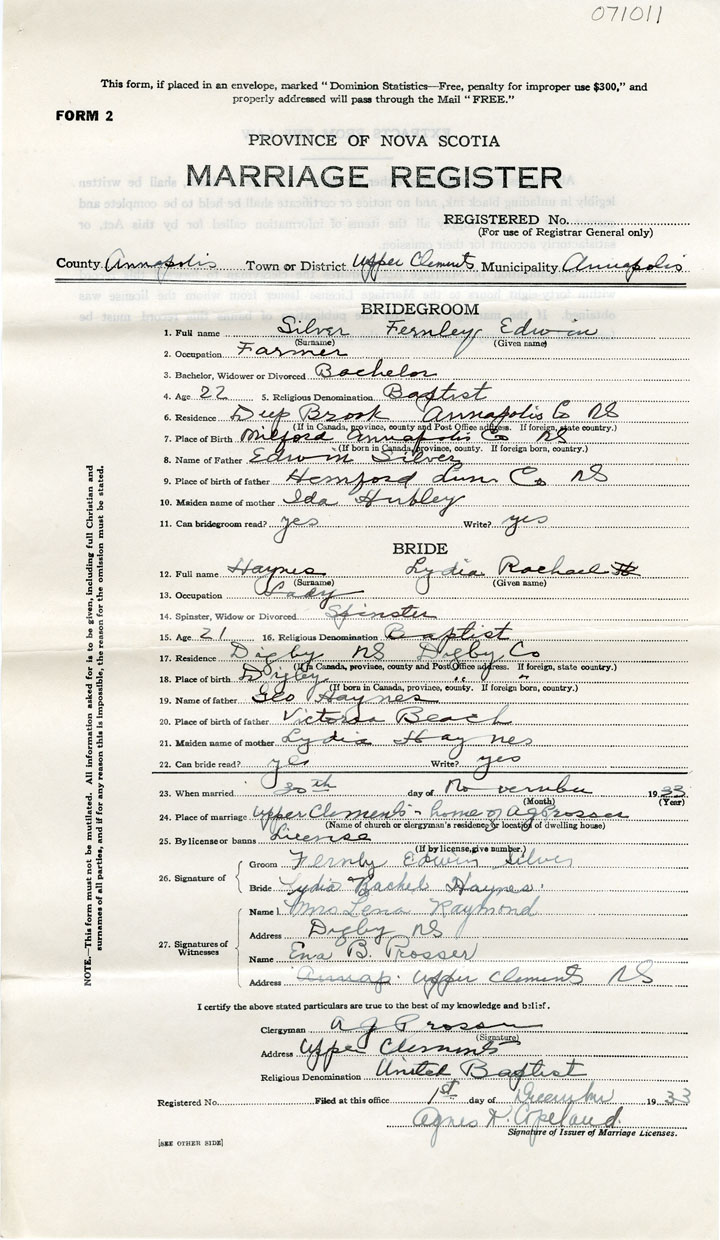 071011
This form, if placed in an envelope, marked "Dominion Statistics—Free, penalty for improper use $300," and
properly addressed will pass through the Mail "FREE."
FORM 2
PROVINCE OF NOVA SCOTIA
MARRIAGE REGISTER
REGISTERED No.
(For use of Registrar General only)
County Annapolis Town or District Upper Clements Municipality Annapolis
BRIDEGROOM
1. Full name Silver Fernley Edwin
(Surname) (Given name)
2. Occupation Farmer
3. Bachelor, Widower or Divorced Bachelor
4. Age 22 5. Religious Denomination Baptist
6. Residence Deep Brook Annapolis Co NS
(If in Canada, province, county and Post Office address. If foreign, state country.)
7. Place of Birth Milford Annapolis Co NS
(If born in Canada, province, county. If foreign born, country.)
8. Name of Father Edwin Silver
9. Place of birth of father Hemford Lun Co NS
10. Maiden name of mother Ida Hubley
11. Can bridegroom read? yes Write? yes
BRIDE
12. Full name Haynes Lydia Rachael
(Surname) (Given name)
13. Occupation Lady
14. Spinster, Widow or Divorced Spinster
15. Age 21 16. Religious Denomination Baptist
17. Residence Digby NS Digby Co
(If in Canada, province, county and Post Office address. If foreign, state country.)
18. Place of birth Digby " "
(If born in Canada, province, county. If foreign born, country.)
19. Name of father Geo Haynes
20. Place of birth of father Victoria Beach
21. Maiden name of mother Lydia Haynes
22. Can bride read? yes Write? yes
23. When married 30th day of November 1933
(Month) (Year)
24. Place of marriage Upper Clements - home of A J Prosser
(Name of church or clergyman's residence or location of dwelling house)
25. By license or banns License
(If by license, give number.)
26. Signature of
Groom Fernley Edwin Silver
Bride Lydia Rachel Haynes.
27. Signatures of Witnesses
Name 1. Mrs Lena Raymond
Address Digby NS
Name Ena B. Prosser
Address Annap. Upper Clements NS
I certify the above stated particulars are true to the best of my knowledge and belief.
Clergyman A J Prosser
(Signature)
Address Upper Clements
Religious Denomination United Baptist
Registered No. Filed at this office 1st day of December 1933
Agnes K. Copeland.
Signature of Issuer of Marriage Licenses.
[SEE OTHER SIDE]
NOTE.—This form must not be mutilated. All information asked for is to be given, including full Christian and
surnames of all parties, and if for any reason this is impossible, the reason for the omission must be stated.